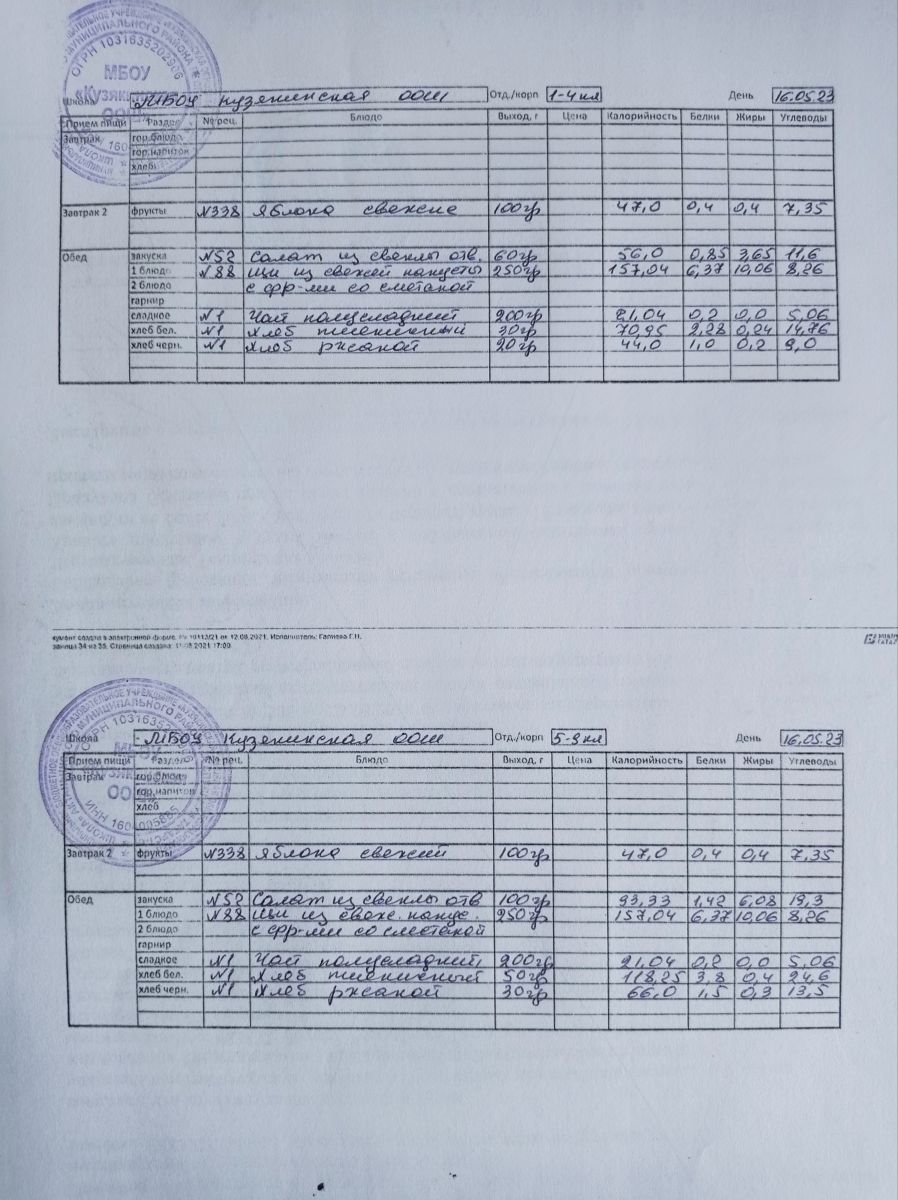 МБОУ «Кузякинская ООШ»
ОГРН 1031635202906
Школа МБОУ Кузякинская ООШ Отд./корп 1-4 кл День 16.05.23
Прием пищи Раздел № рец. Блюдо Выход, г Цена Калорийность Белки Жиры Углеводы
Завтрак гор.блюдо
гор.напиток
хлеб
Завтрак 2 фрукты №338 Яблоко свежие 100гр 47,0 0,4 0,4 7,35
Обед закуска №52 Салат из свеклы отв. 60гр 56,0 0,85 3,65 11,6
1 блюдо №88 Щи из свежей капусты 250гр 157,04 6,37 10,06 8,26
2 блюдо с фр-ми со сметаной
гарнир
сладкое №1 Чай полусладкий 200гр 21,04 0,2 0,0 5,06
хлеб бел. №1 Хлеб пшеничный 30гр 70,95 2,28 0,24 14,76
хлеб черн. №1 Хлеб ржаной 20гр 44,0 1,0 0,2 9,0
кумент создан в электронной форме. № 10113/21 от 12.08.2021. Исполнитель: Галиева Г.Н.
аница 34 из 35. Страница создана: 11.08.2021 17:00
Школа МБОУ Кузякинская ООШ Отд./корп 5-9 кл День 16.05.23
Прием пищи Раздел № рец. Блюдо Выход, г Цена Калорийность Белки Жиры Углеводы
Завтрак гор.блюдо
гор.напиток
хлеб
Завтрак 2 фрукты №338 Яблоко свежий 100гр 47,0 0,4 0,4 7,35
Обед закуска №52 Салат из свеклы отв 100гр 93,33 1,42 6,08 19,3
1 блюдо №88 Щи из свеж. капус. 250гр 157,04 6,37 10,06 8,26
2 блюдо с фр-ми со сметаной
гарнир
сладкое №1 Чай полусладкий 200гр 21,04 0,2 0,0 5,06
хлеб бел. №1 Хлеб пшеничный 50гр 118,25 3,8 0,4 24,6
хлеб черн. №1 Хлеб ржаной 30гр 66,0 1,5 0,3 13,5